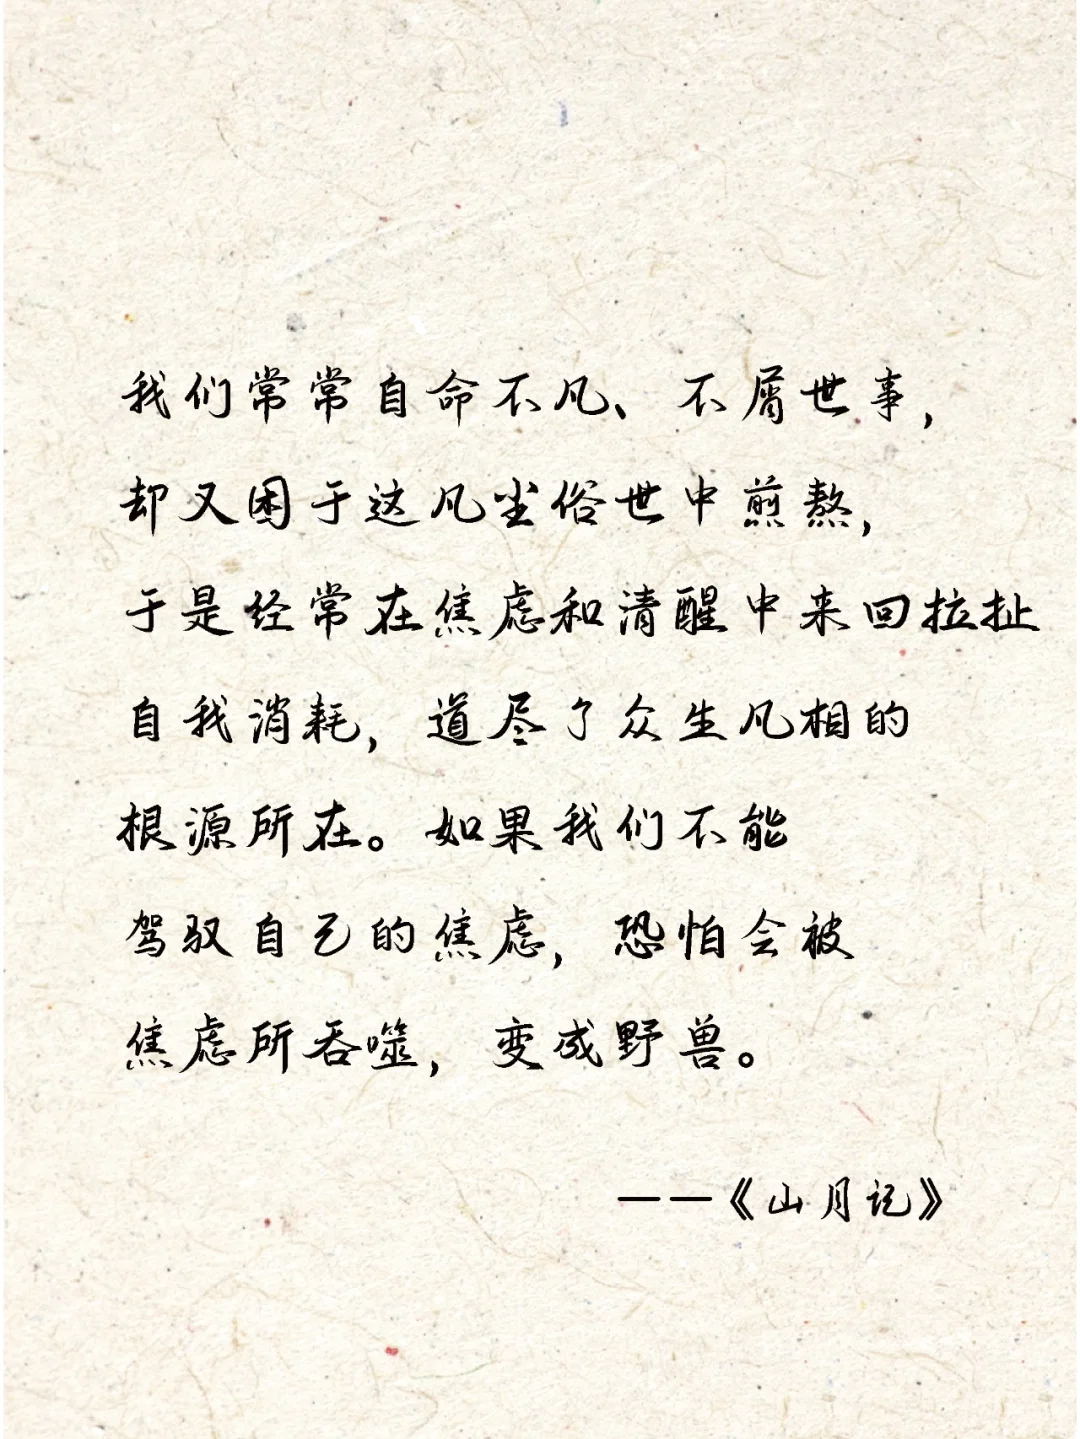 我们常常自命不凡、不屑世事，
却又困于这凡尘俗世中煎熬，
于是经常在焦虑和清醒中来回拉扯
自我消耗，道尽了众生凡相的
根源所在。如果我们不能
驾驭自己的焦虑，恐怕会被
焦虑所吞噬，变成野兽。
——《山月记》